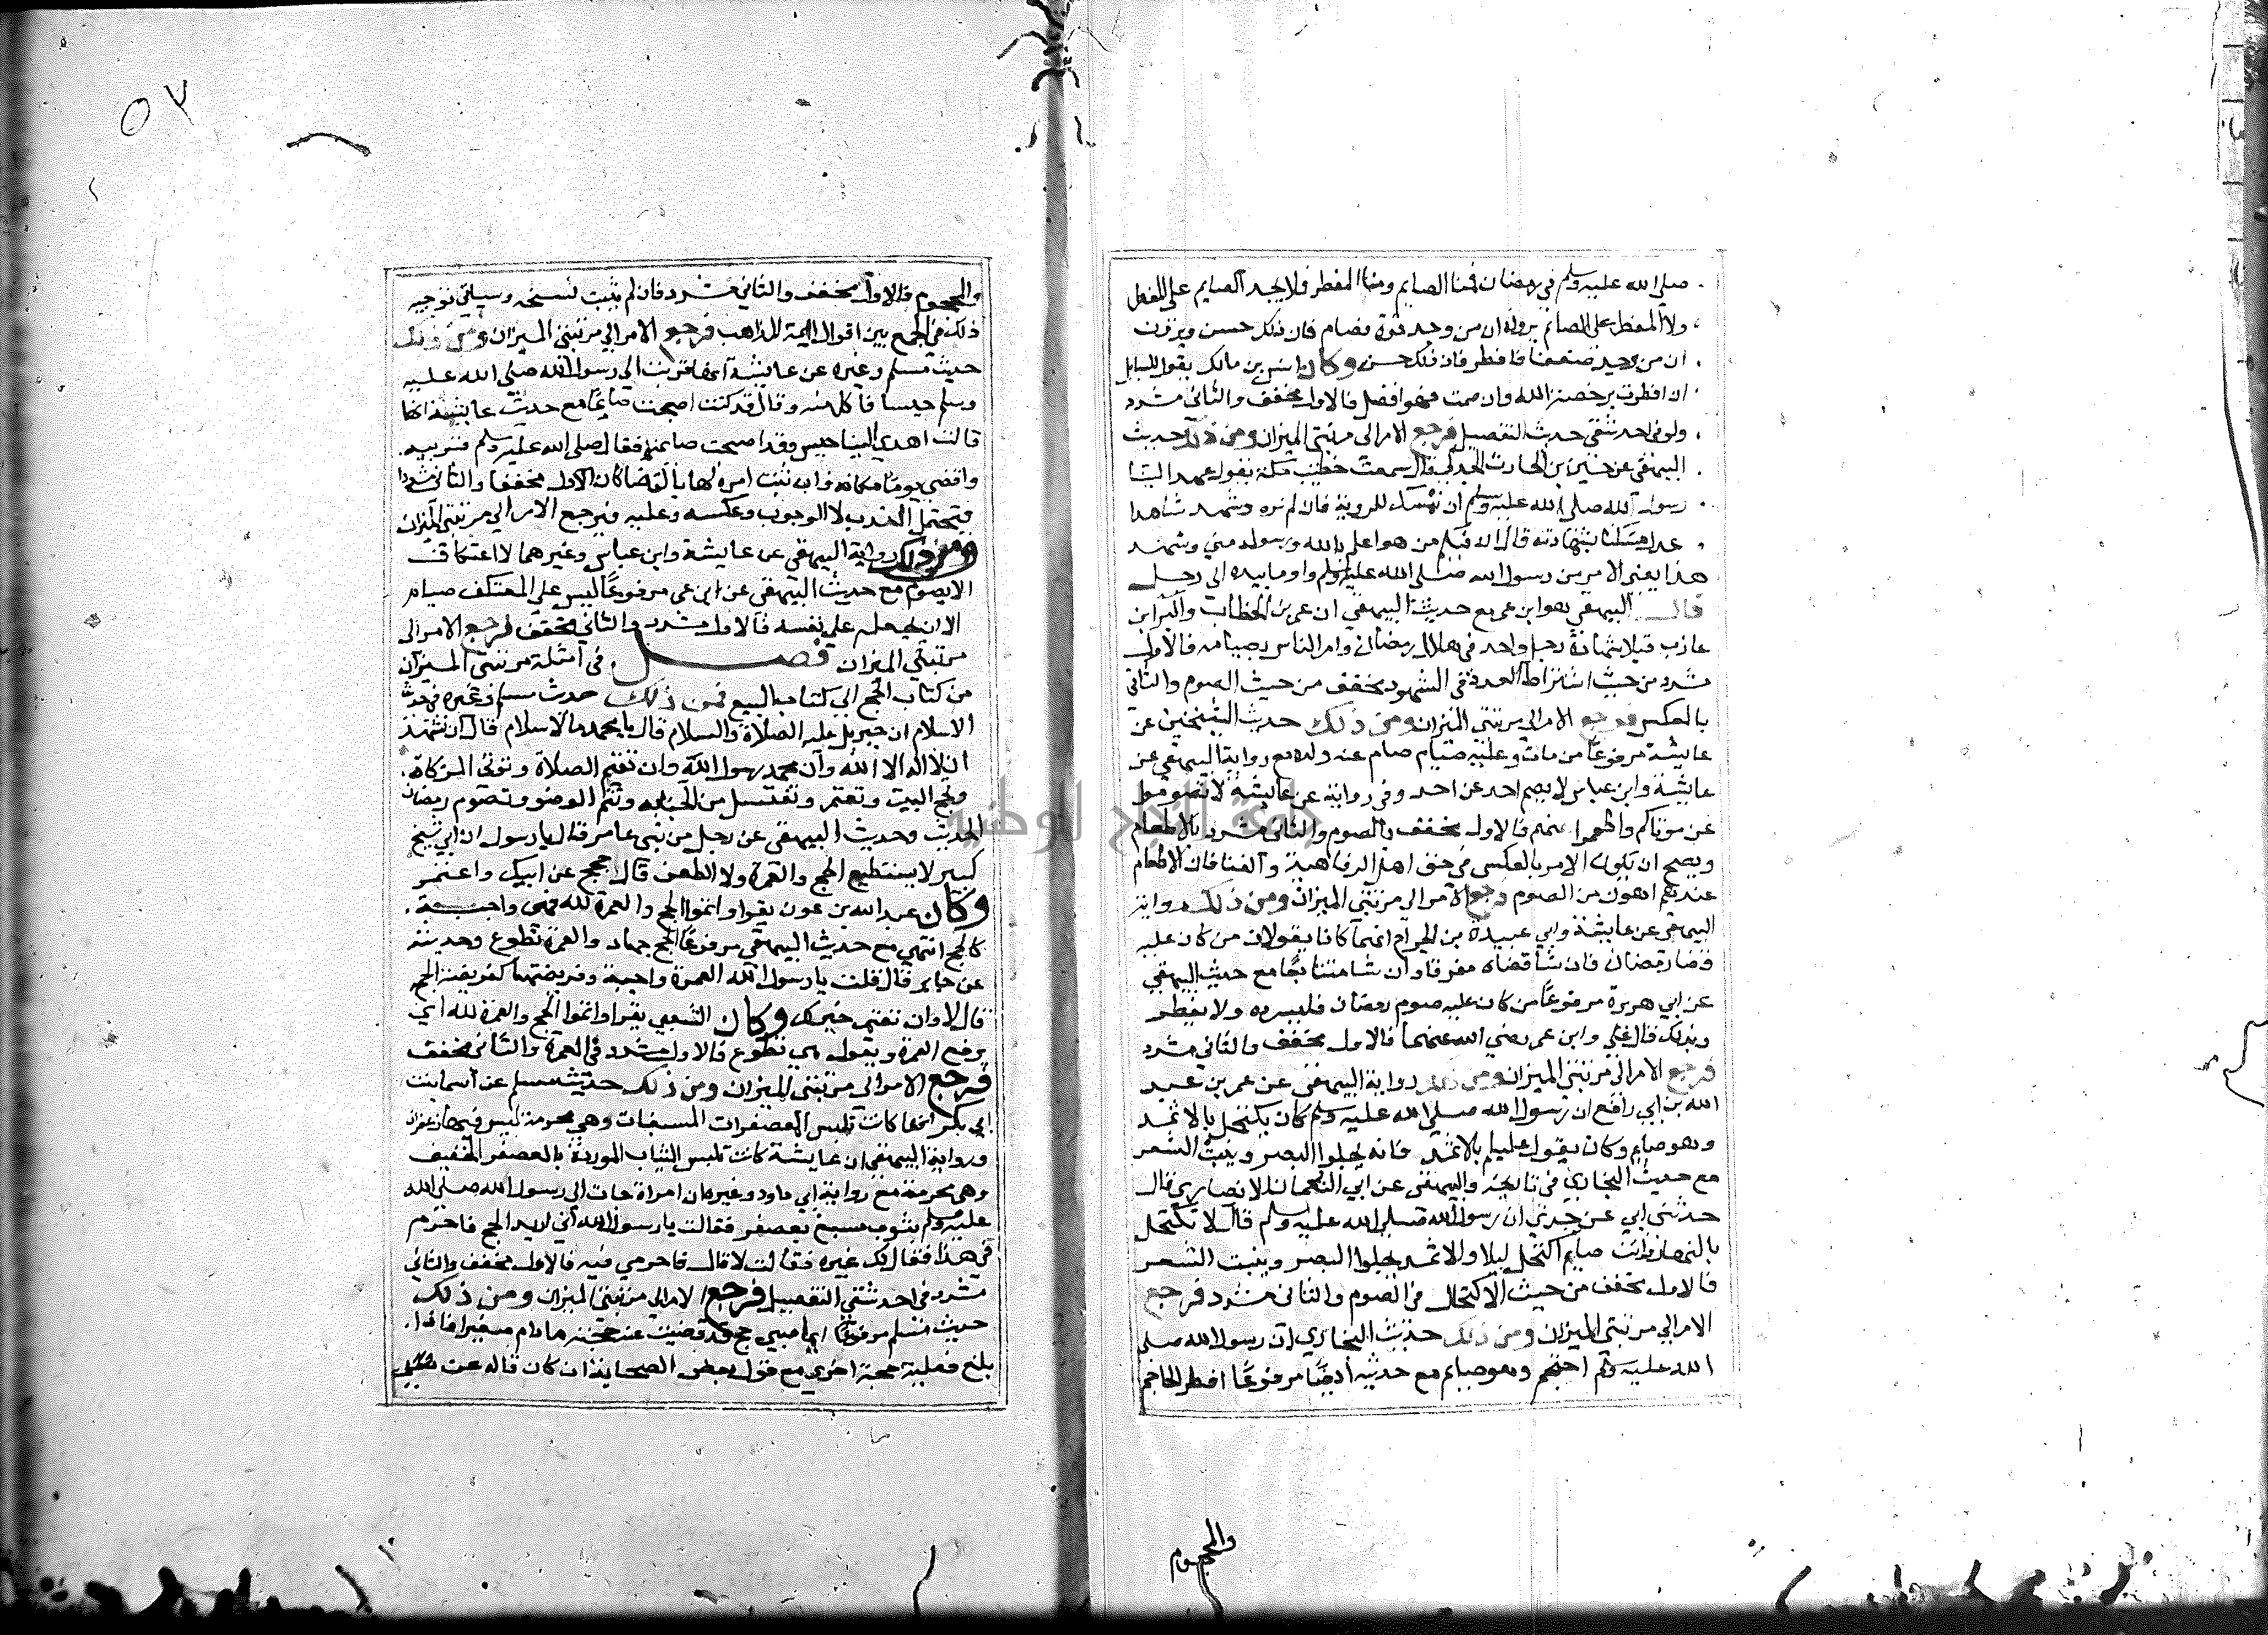 صلى الله عليه وسلم في رمضان فمنا الصايم ومنا المفطر فلا يجد الصايم على المفطر
ولا المفطر على الصائم يرون ان من وجد قوة فصام فان ذلك حسن ويرون
ان من وجد ضعفا فافطر فان ذلك حسن وكان انس بن مالك يقول للسايل
ان افطرت برخصة الله وان صمت فهو افضل فالاول مخفف والثاني مشدد
ولو في احد شقي حديث التفصيل فرجع الامر الى مرتبتي الميزان ومن ذلك حديث
البيهقي عن حسين بن الحارث الجدلي قال سمعت خطيب مكة يقول عهد الينا
رسول الله صلى الله عليه وسلم ان ننسك للروية فان لم نره وشهد شاهدا
عدل نسكنا بشهادته قال ان فيكم من هو اعلم بالله ورسوله مني وشهد
هذا يعني الامر من رسول الله صلى الله عليه وسلم واوما بيده الى رجل
قال البيهقي هو ابن عمر مع حديث البيهقي ان عمر بن الخطاب والبرا بن
عازب قبلا شهادة رجل واحد في هلال رمضان وامر الناس بصيامه فالاول
شدد من حيث اشتراط العدد في الشهود مخفف من حيث الصوم والثاني
بالعكس فرجع الامر الى مرتبتي الميزان ومن ذلك حديث الشيخين عن
عايشة مرفوعا من مات وعليه صيام صام عنه وليه مع رواية البيهقي عن
عايشة وابن عباس لا يصم احد عن احد وفي رواية عن عايشة لا تصوموا
عن موتاكم واطعموا عنهم فالاول مخفف بالصوم والثاني مشدد بالاطعام
ويصح ان يكون الامر بالعكس في حق اهل الرفاهية والغنا فان الاطعام
عندهم اهون من الصوم فرجع الامر الى مرتبتي الميزان ومن ذلك رواية
البيهقي عن عايشة وابي عبيدة بن الجراح انهما كانا يقولان من كان عليه
قضا رمضان فان شا قضاه مفرقا وان شا متتابعا مع حديث البيهقي
عن ابي هريرة مرفوعا من كان عليه صوم رمضان فليسرده ولا يفطر
وبذلك قال علي وابن عمر رضي الله عنهما فالاول مخفف والثاني مشدد
فرجع الامر الى مرتبتي الميزان ومن ذلك رواية البيهقي عن عمر بن عبيد
الله بن ابي رافع ان رسول الله صلى الله عليه وسلم كان يكتحل بالاثمد
وهو صايم وكان يقول عليكم بالاثمد فانه يجلوا البصر وينبت الشعر
مع حديث البخاري في تاريخه والبيهقي عن ابي النعمان الانصاري قال
حدثني ابي عن جدي ان رسول الله صلى الله عليه وسلم قال لا تكتحل
بالنهار وانت صايم اكتحل ليلا والاثمد يجلوا البصر وينبت الشعر
فالاول مخفف من حيث الاكتحال في الصوم والثاني مشدد فرجع
الامر الى مرتبتي الميزان ومن ذلك حديث البخاري ان رسول الله صلى
الله عليه وسلم احتجم وهو صايم مع حديثه ايضا مرفوعا افطر الحاجم
والمحجوم
والمحجوم فالاول مخفف والثاني مشدد فان لم يثبت نسخه وسياتي توجيه
ذلك في الجمع بين اقوال ايمة المذاهب فرجع الامر الى مرتبتي الميزان ومن ذلك
حديث مسلم وغيره عن عايشة انها قربت الى رسول الله صلى الله عليه
وسلم حيسا فاكل منه وقال قد كنت اصبحت صايما مع حديث عايشة انها
قالت اهدي الينا حيس وقد اصبحت صايمة فقال صلى الله عليه وسلم
واقضي يوما مكانه فان ثبت امره لها بالقضا كان الاول مخففا والثاني مشددا
ويحتمل الندب لا الوجوب وعكسه وعليه فيرجع الامر الى مرتبتي الميزان
ومن ذلك رواية البيهقي عن عايشة وابن عباس وغيرهما لا اعتكاف
الا بصوم مع حديث البيهقي عن ابن عمر مرفوعا ليس على المعتكف صيام
الا ان يجعله على نفسه فالاول مشدد والثاني مخفف فرجع الامر الى
مرتبتي الميزان فصل في امثلة مرتبتي الميزان
من كتاب الحج الى كتاب البيع فمن ذلك حديث مسلم وغيره في حديث
الاسلام ان جبريل عليه الصلاة والسلام قال يا محمد ما الاسلام قال ان تشهد
ان لا اله الا الله وان محمد رسول الله وان تقيم الصلاة وتوتي الزكاة
وتحج البيت وتعتمر وتغتسل من الجنابة وتتم الوضو وتصوم رمضان
الحديث وحديث البيهقي عن رجل من بني عامر قال يا رسول ان ابي شيخ
كبير لا يستطيع الحج والعمرة ولا الظعن قال احجج عن ابيك واعتمر
وكان عبد الله بن عون يقرا واتموا الحج والعمرة لله فهي واجبة
كالحج انتهى مع حديث البيهقي مرفوعا الحج جهاد والعمرة تطوع وحديثه
عن جابر قال قلت يا رسول الله العمرة واجبة وفريضتها كفريضة الحج
قال لا وان تعتمر خير لك وكان الشعبي يقرا واتموا الحج والعمرة لله اي
برفع العمرة ويقول هي تطوع فالاول مشدد في العمرة والثاني مخفف
فرجع الامر الى مرتبتي الميزان ومن ذلك حديث مسلم عن اسما بنت
ابي بكر انها كانت تلبس المعصفرات المشبعات وهي محرمة ليس فيها زعفران
ورواية البيهقي ان عايشة كانت تلبس الثياب الموردة بالعصفر الخفيف
وهي محرمة مع رواية ابي داود وغيره ان امراة جات الى رسول الله صلى الله
عليه وسلم بثوب مشبع بعصفر فقالت يا رسول الله اني اريد الحج فاحرم
في هذا فقال لك غيره فقالت لا قال فاحرمي فيه فالاول مخفف والثاني
مشدد في احد شقي التفصيل فرجع الامر الى مرتبتي الميزان ومن ذلك
حديث مسلم مرفوعا ايما صبي حج فقد قضيت عنه حجته ما دام صغيرا فاذا
بلغ فعليه حجة اخرى مع قول بعض الصحابة ان كان قاله عن
٥٧
جامعة النجاح الوطنية